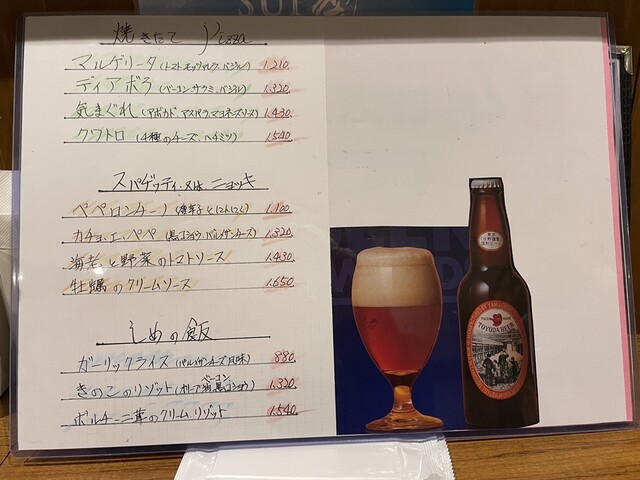 焼きたて Pizza
マルゲリータ (トマト、モッツァレラ、バジル) 1,210
ディアボラ (ベーコン、サラミ、バジル) 1,320
気まぐれ (アボカド、アスパラ、マヨネーズソース) 1,430
クワトロ (4種のチーズ、ハチミツ) 1,540
スパゲッティ・又は ニョッキ
ペペロンチーノ (唐辛子とにんにく) 1,100
カチョ・エ・ペペ (黒コショウ、パルメザンチーズ) 1,320
海老と野菜のトマトソース 1,430
牡蠣のクリームソース 1,650
しめの飯
ガーリックライス (パルメザンチーズ風味) 880
きのこのリゾット (ベーコン 黒コショウ) 1,320
ポルチーニ茸のクリームリゾット 1,540
TOYODA BEER